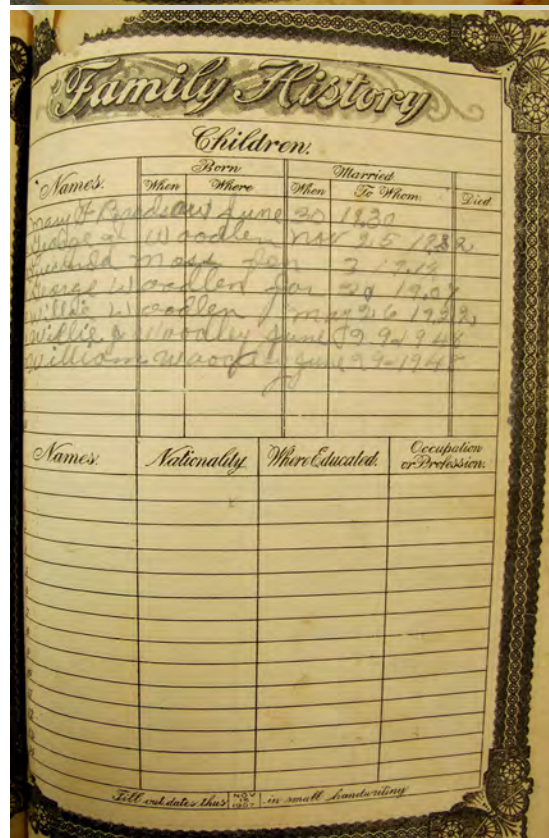 Family History
Children.
Names. Born Married Died
When Where When To Whom
Mary F June 20 1930
George W Woodlen Nov 25 1932
Moss 3
George Woodlen Jan 1907
Willie Woodlen May 26 1932
Willie J Woodley June 29-194
William Woodley June 29-194
Names. Nationality Where Educated. Occupation or Profession.
Fill out dates thus NOV 15 1907 in small handwriting